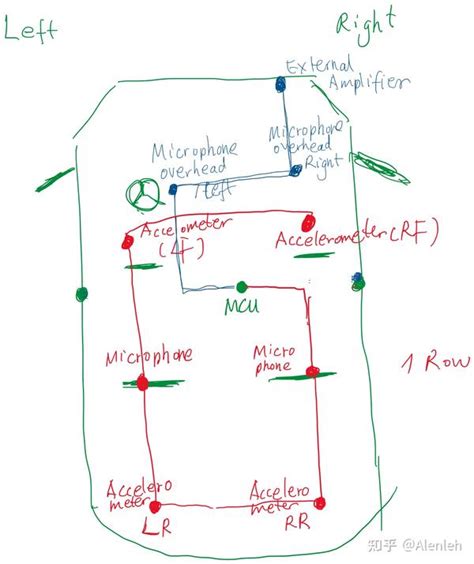 Left
Right
External
Amplifier
Microphone
overhead
Right
Microphone
overhead
Left
Accelometer
(LF)
Accelerometer(RF)
MCU
Microphone
Micro
phone
1 Row
Accelero
meter
LR
Accelero
meter
RR
知乎 @Alenleh